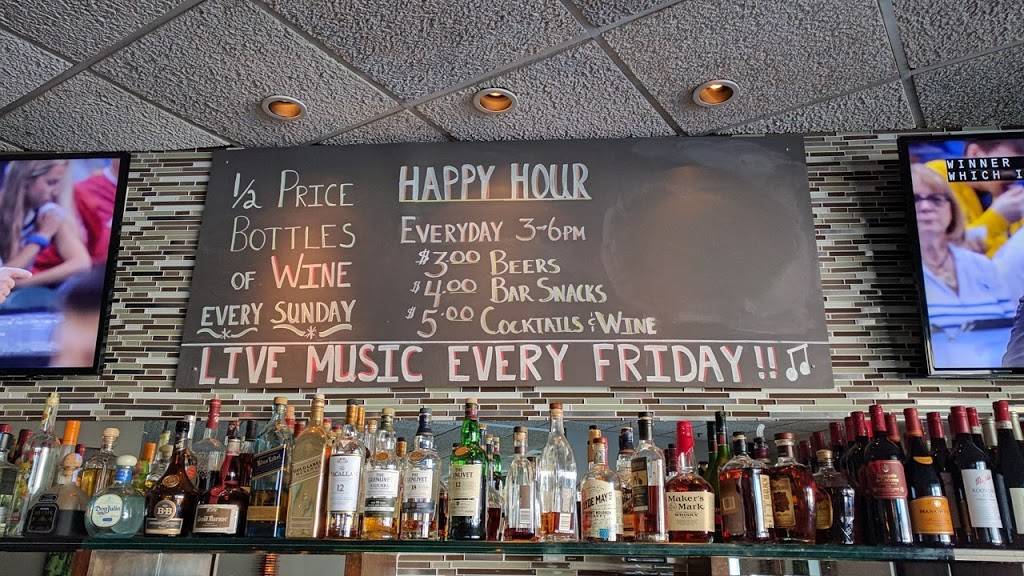 ½ PRICE
BOTTLES
OF WINE
EVERY SUNDAY
HAPPY HOUR
EVERYDAY 3-6PM
$3.00 BEERS
$4.00 BAR SNACKS
$5.00 COCKTAILS & WINE
LIVE MUSIC EVERY FRIDAY!!
WINNER
WHICH I
DonJulio
B&B
Grand Marnier
MACALLAN
12
GLENLIVET
GLENLIVET
18
12
Maker's
Mark
WHISKY